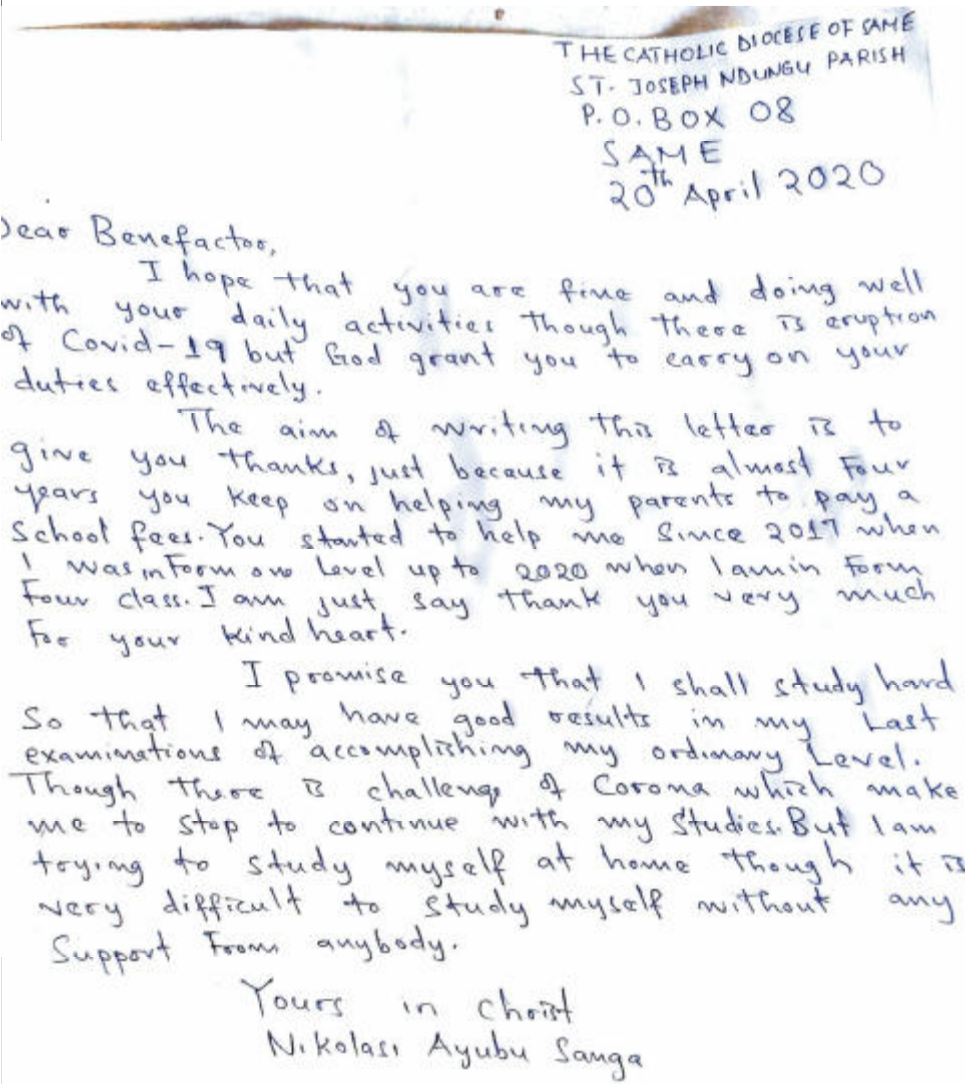 THE CATHOLIC DIOCESE OF SAME
ST. JOSEPH NDUNGU PARISH
P.O. BOX 08
SAME
20th April 2020
Dear Benefactor,
I hope that you are fine and doing well
with your daily activities though there is eruption
of Covid-19 but God grant you to carry on your
duties effectively.
The aim of writing this letter is to
give you thanks, just because it is almost Four
years you keep on helping my parents to pay a
School fees. You started to help me Since 2017 when
I was in Form one Level up to 2020 when I am in Form
Four class. I am just say thank you very much
For your kind heart.
I promise you that I shall study hard
So that I may have good results in my Last
examinations of accomplishing my ordinary Level.
Though there is challenge of Corona which make
me to stop to continue with my studies. But I am
trying to study myself at home though it is
very difficult to study myself without any
Support From anybody.
Yours in Christ
Nikolasi Ayubu Sanga